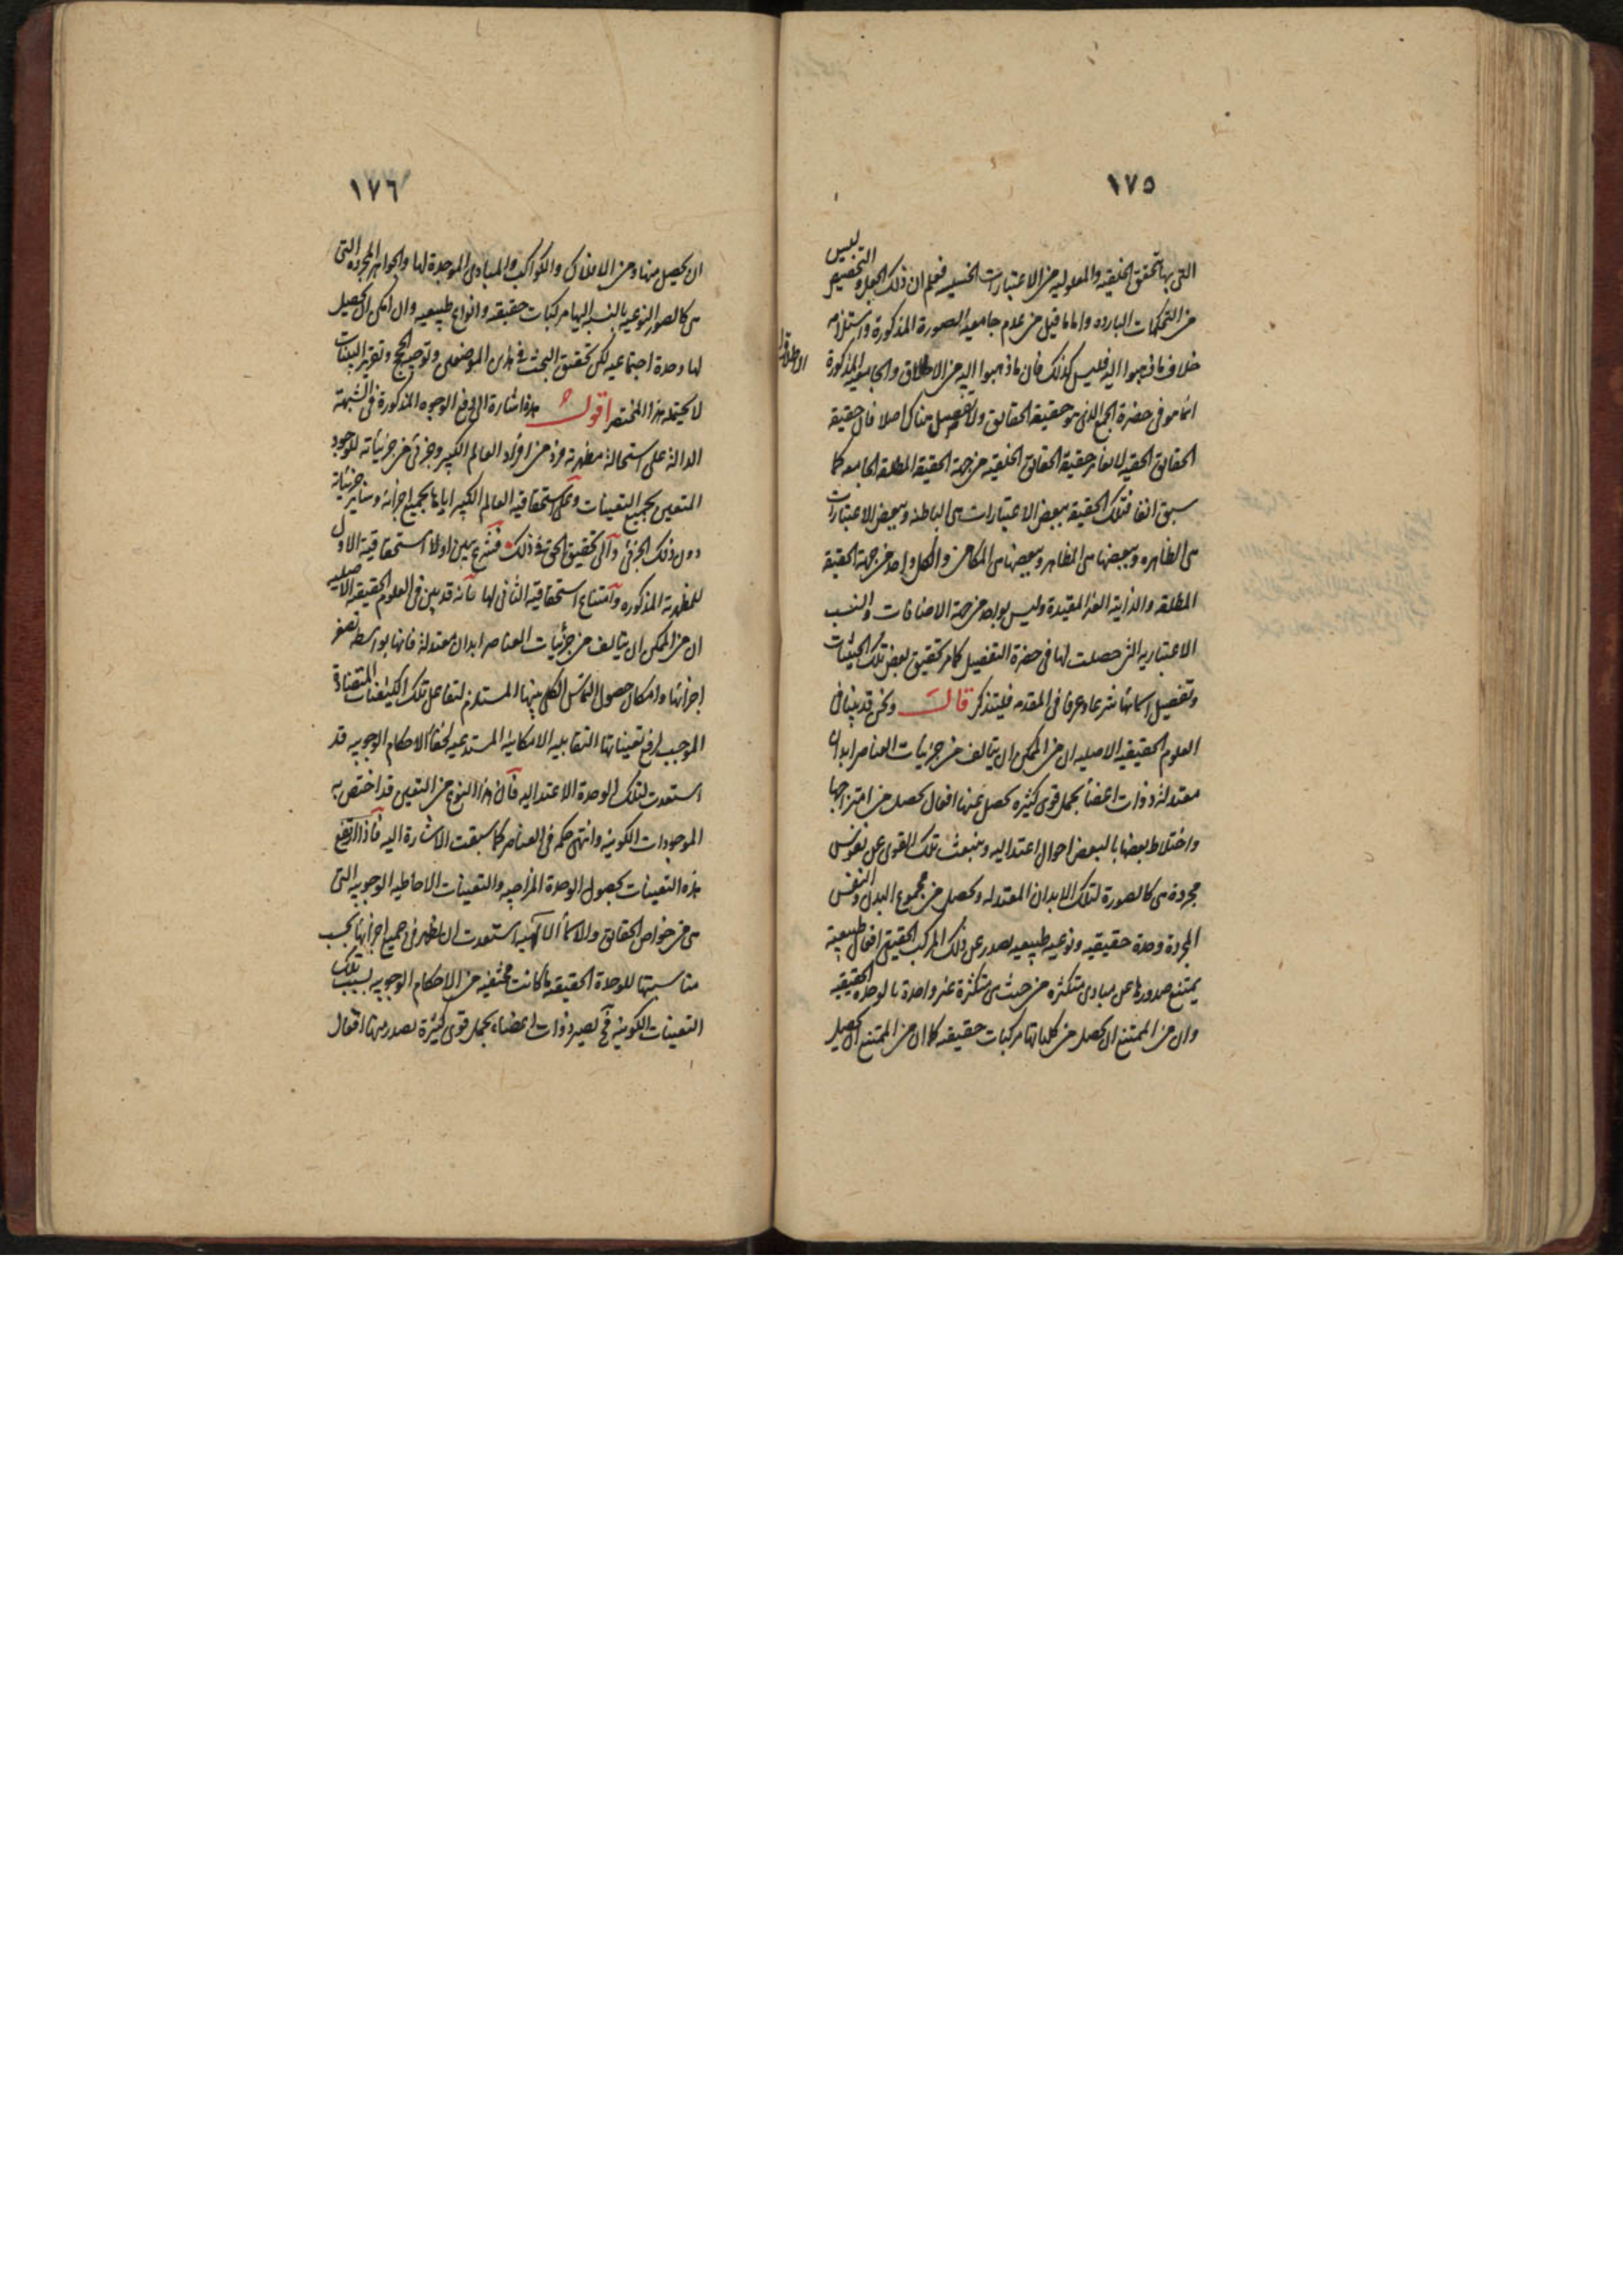 ١٧٥
التى بها تحقق الخلقيه والمعلوليه من الاعتبارات الخسيسه فعلم ان ذلك الجعل والتخصيص ليس
من التحكمات الباردة واما ما قيل من عدم جامعية الصورة المذكورة واستلزامه
خلاف ما ذهبوا اليه فليس كذلك فان ما ذهبوا اليه من الاطلاق والجامعية المذكورة
انما هو فى حضرة الجمع الذى هو حقيقة الحقائق ولا تفصيل هناك اصلا فان حقيقة
الحقائق الحقيه لا تغاير حقيقة الحقائق الخلقيه من جهة الحقيقة المطلقه الجامعه كما
سبق انفا فتلك الحقيقة ببعض الاعتبارات هى الباطنه وببعض الاعتبارات
هى الظاهره وببعضها هى المظاهر وببعضها هى المكامن والكل واحد من جهة الحقيقة
المطلقه والذاتية الغير المقيدة وليس بواحد من جهة الاضافات والنسب
الاعتباريه التى حصلت لها فى حضرة التفصيل كما مر تحقيق بعض تلك الحيثيات
وتفصيل اسمائها شرعا وعرفا فى المقدمه فليتذكر قال ونحن قد بينا فى
العلوم الحقيقيه الاصليه ان من الممكن ان يتالف من جزئيات العناصر ابدان
معتدلة ذوات اعضأ بحمل قوى كثيره تحصل عنها افعال تحصل من امتزاجها
واختلاط بعضها بالبعض احوال اعتداليه وينبعث تلك القوى عن نفوس
مجردة هى كالصورة لتلك الابدان المعتدله وتحصل من مجموع البدن والنفس
المجردة وحدة حقيقيه ونوعيه طبيعيه تصدر عن ذلك المركب الحقيقى افعال طبيعية
يمتنع صدورها عن مبادى متكثره من حيث هى متكثرة غير واحدة بالوحدة الحقيقيه
وان من الممتنع ان تحصل من كلياتها مركبات حقيقيه كما ان من الممتنع ان تحصيل
١٧٦
ان يحصل منها ومن الافلاك والكواكب والمبادى الموجدة لها والجواهر المجرده التى
هى كالصور النوعيه بالنسبه اليها مركبات حقيقيه وانواع طبيعيه وان امكن ان يحصل
لها وحدة اجتماعيه لكن تحقيق البحث فى هذين الموضعين وتوضيح الحجج وتقرير البينات
لا يحتمله هذا المختصر اقول هذا اشارة الى دفع الوجوه المذكورة فى الشبهة
الدالة على استحالة مظهرية فرد من افراد العالم الكبير وجزئى من جزئياته للوجود
المتعين بجميع التعينات وعلى استحقاقية العالم الكبير اياها بجميع اجزائه وسائر جزئياته
دون ذلك الجزئى والى تحقيق الحق فى ذلك فشرع يبين اولا استحقاقية الاول
للمظهرية المذكوره وامتناع استحقاقية الثانى لها بانه قد بين فى العلوم الحقيقيه الاصليه
ان من الممكن ان يتالف من جزئيات العناصر ابدان معتدلة فانها بواسطه تصغر
اجزائها وامكان حصول التماس الكلى بينها المستلزم لتفاعل تلك الكيفيات المتضادة
الموجب لرفع تعيناتها التقابليه الامكانية المستدعيه لخفأ الاحكام الوجوبيه قد
استعدت لتلك الوحدة الاعتداليه فان هذا النوع من التعين قد اختص به
الموجودات الكونيه وانتهى حكمه فى العناصر كما سبقت الاشارة اليه فاذا ارتفع
هذه التعينات بحصول الوحدة المزاجيه والتعينات الاحاطيه الوجوبيه التى
هى من خواص الحقائق والاسمأ الالهيه استعدت ان يظهر فى جميع اجزائها بحسب
مناسبتها للوحدة الحقيقيه ما كانت مختفيه من الاحكام الوجوبيه بسبب تلك
التعينات الكونيه فح تصير ذوات اعضاء بحمل قوى كثيرة تصدر منها افعال